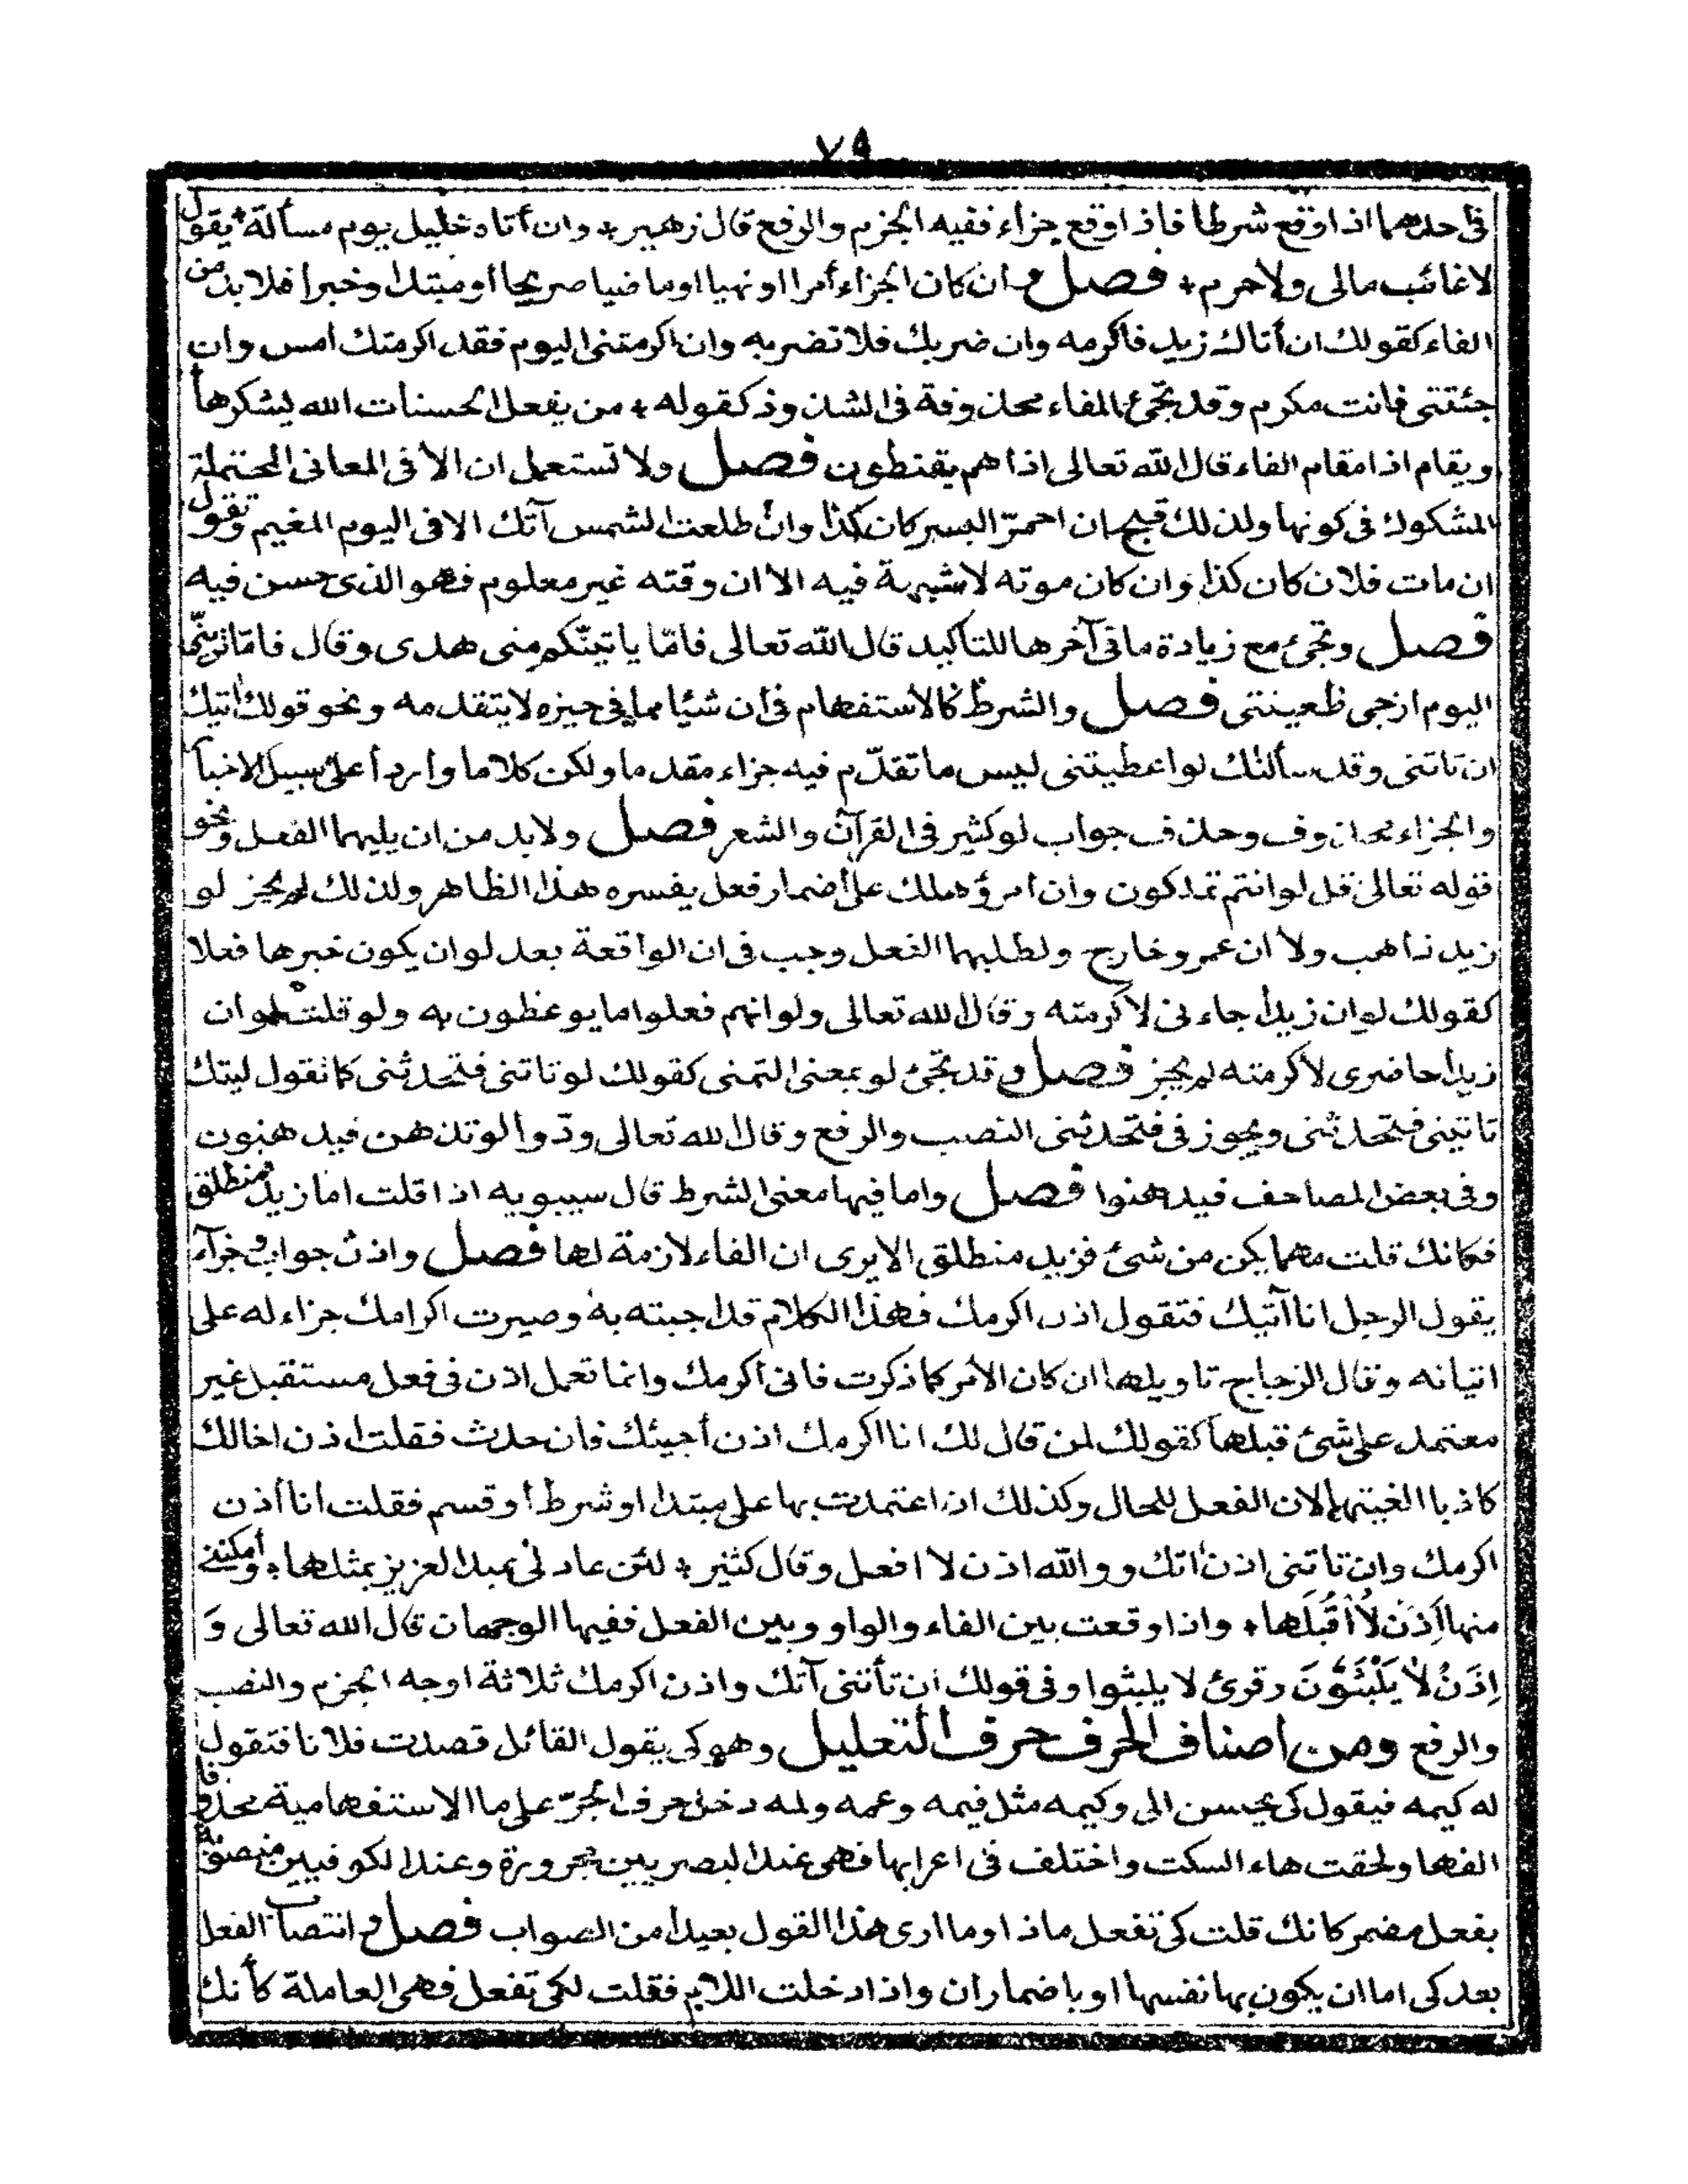 ٧٩
في احدهما اذا وقع شرطا فاذا وقع جزاء ففيه الجزم والرفع قال زهير * وان أتاه خليل يوم مسألة * يقول
لا غائب مالى ولا حرم * فصل وان كان الجزاء أمرا او نهيا او ماضيا صريحا أو مبتدا وخبرا فلا بد من
الفاء كقولك ان أتاك زيد فاكرمه وان ضربك فلا تضربه وان اكرمتنى اليوم فقد اكرمتك امس وان
جئتنى فانت مكرم وقد تجئ الفاء محذوفة فى الشذوذ كقوله * من يفعل الحسنات الله يشكرها
ويقام اذا مقام الفاء قال الله تعالى اذا هم يقنطون فصل ولا تستعمل ان الا فى المعانى المحتملة
المشكوك فى كونها ولذلك قبح ان احمرّ البسر كان كذا وان طلعت الشمس آتك الا فى اليوم المغيم وتقول
ان مات فلان كان كذا وان كان موته لا شبهة فيه الا ان وقته غير معلوم فهو الذى حسن فيه
فصل وتجئ مع زيادة ما فى آخرها للتاكيد قال الله تعالى فامّا ياتينّكم منى هدى وقال فامّا ترينّى
اليوم ازجى ظعينتى فصل والشرط كالاستفهام فى ان شيئا مما فى حيزه لا يتقدمه ونحو قولك اتيك
ان تاتنى وقد سألتك لو اعطيتنى ليس ما تقدّم فيه جزاء مقدما ولكن كلاما واردا على سبيل الاخبار
والجزاء محذوف وحذف جواب لو كثير فى القرآن والشعر فصل ولا بد من ان يليهما الفعل ونحو
قوله تعالى قل لو انتم تملكون وان امرؤ هلك على اضمار فعل يفسره هذا الظاهر ولذلك لم يجز لو
زيد ذاهب ولا ان عمرو خارج ولطلبهما الفعل وجب فى ان الواقعة بعد لو ان يكون خبرها فعلا
كقولك لو ان زيدا جاءنى لاكرمته وقال الله تعالى ولو انهم فعلوا ما يوعظون به ولو قلت لو ان
زيدا حاضرى لاكرمته لم يجز فصل وقد تجئ لو بمعنى التمنى كقولك لو تاتنى فتحدثنى كما تقول ليتك
تاتينى فتحدثنى ويجوز فى فتحدثنى النصب والرفع وقال الله تعالى ودّوا لو تدهن فيدهنون
وفى بعض المصاحف فيدهنوا فصل واما فيها معنى الشرط قال سيبويه اذا قلت اما زيد فمنطلق
فكانك قلت مهما يكن من شئ فزيد منطلق الا يرى ان الفاء لازمة لها فصل واذن جواب وجزآء
يقول الرجل انا آتيك فتقول اذن اكرمك فهذا الكلام قد اجبته به وصيرت اكرامك جزاء له على
اتيانه وقال الزجاج تاويلها ان كان الأمر كما ذكرت فانى اكرمك وانما تعمل اذن فى فعل مستقبل غير
معتمد على شئ قبلها كقولك لمن قال لك انا اكرمك اذن أجيئك فان حدث فقلت اذن اخالك
كاذبا الغيتها لان الفعل للحال وكذلك اذا اعتمدت بها على مبتدا او شرط أو قسم فقلت أنا أذن
اكرمك وان تاتنى اذن اتك ووالله اذن لا افعل وقال كثير * لئن عاد لى عبد العزيز بمثلها * وأمكننى
منها اَِذَن لا اُقْبُلَها * واذا وقعت بين الفاء والواو وبين الفعل ففيها الوجهان قال الله تعالى وَ
اِذَنْ لَا يَلْبَثُونَ وقرئ لا يلبثوا وفى قولك ان تأتنى آتك واذن اكرمك ثلاثة اوجه الجزم والنصب
والرفع ومن اصناف الحرف حرف التعليل وهو كى يقول القائل قصدت فلانا فتقول
له كيمه فيقول كى يحسن الى وكيمه مثل فيمه وعمه ولمه دخل حرف الجرّ على ما الاستفهامية محذوفا
الفها ولحقت هاء السكت واختلف فى اعرابها فهى عند البصريين مجرورة وعند الكوفيين منصوبة
بفعل مضمر كانك قلت كى تفعل ماذا وما ارى هذا القول بعيدا من الصواب فصل وانتصاب الفعل
بعد كى اما ان يكون بها نفسها او باضمار ان واذا دخلت اللام فقلت لكى تفعل فهى العاملة كأنك